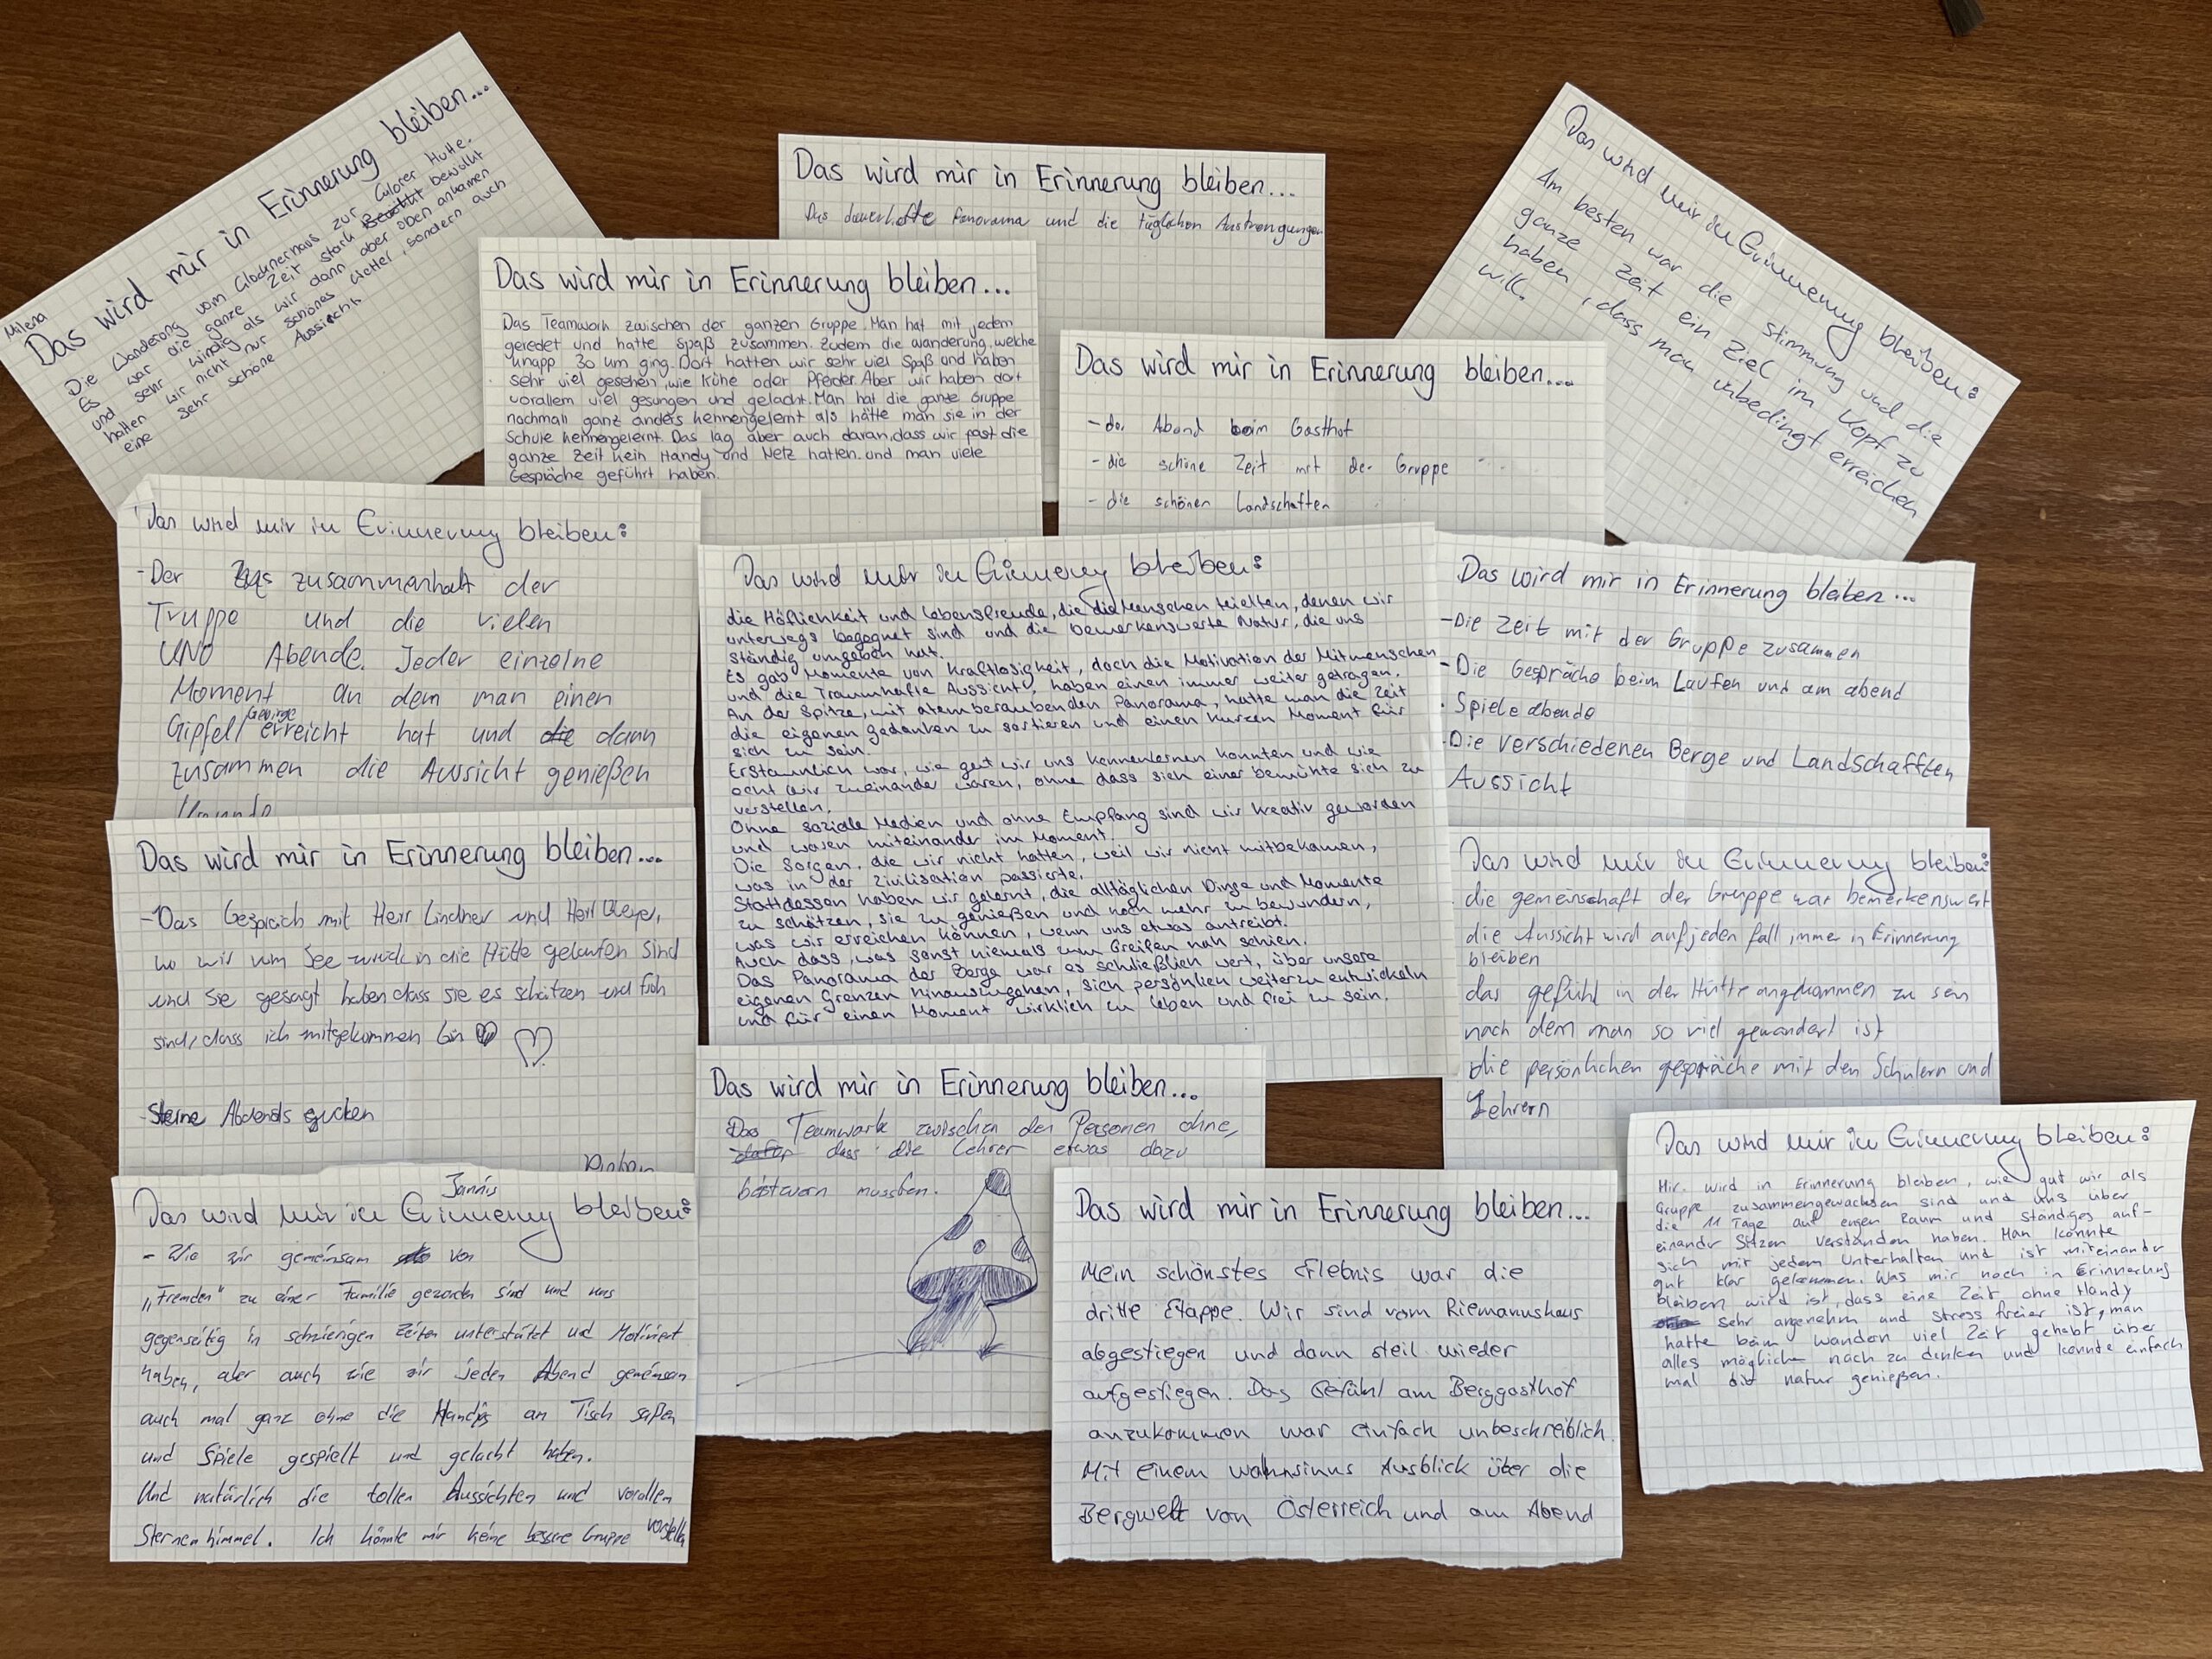 Milena
Das wird mir in Erinnerung bleiben...
Die Wanderung vom Glocknerhaus zur Hütte.
Es war die ganze Zeit stark bewölkt
und sehr windig als wir dann aber oben ankamen
hatten wir nicht nur schönes Wetter, sondern auch
eine sehr schöne Aussicht
Das wird mir in Erinnerung bleiben...
Das dauerhafte Panorama und die täglichen Anstrengungen
Das wird mir in Erinnerung bleiben:
Am besten war die stimmung und die
ganze Zeit ein Ziel im Kopf zu
haben, dass man unbedingt erreichen
will.
Das wird mir in Erinnerung bleiben...
Das Teamwork zwischen der ganzen Gruppe. Man hat mit jedem
geredet und hatte Spaß zusammen. Zudem die wanderung, welche
knapp 30 km ging. Dort hatten wir sehr viel Spaß und haben
sehr viel gesehen, wie Kühe oder Pferde. Aber wir haben dort
vorallem viel gesungen und gelacht. Man hat die ganze Gruppe
nochmall ganz anders kennengelernt als hätte man sie in der
Schule kennengelernt. Das lag aber auch daran, dass wir fast die
ganze Zeit kein Handy und Netz hatten. und man viele
Gespräche geführt haben.
Das wird mir in Erinnerung bleiben...
- der Abend beim Gasthof
- die schöne Zeit mit der Gruppe
- die schönen Landschaften
Das wird mir in Erinnerung bleiben:
- Der zusammenhalt der
Truppe und die vielen
UNO Abende. Jeder einzelne
Moment an dem man einen
Gipfel/Gebirge erreicht hat und dann
zusammen die Aussicht genießen
konnte
Das wird mir in Erinnerung bleiben:
die Höflichkeit und Lebensfreude, die die Menschen teielten, denen wir
unterwegs begegnet sind und die bemerkenswerte Natur, die uns
ständig umgeben hat.
Es gab Momente von Kraftlosigkeit, doch die Motivation der Mitmenschen
und die Traumhafte Aussicht, haben einen immer weiter getragen.
An der Spitze, mit atemberaubenden Panorama, hatte man die Zeit
die eigenen gedanken zu sortieren und einen kurzen Moment für
sich zu sein.
Erstaunlich war, wie gut wir uns kennenlernen konnten und wie
echt wir zueinander waren, ohne dass sich einer bemühte sich zu
verstellen.
Ohne soziale Medien und ohne Empfang sind wir kreativ geworden
und waren miteinander im Moment.
Die Sorgen, die wir nicht hatten, weil wir nicht mitbekamen,
was in der Zivilisation passierte.
Stattdessen haben wir gelernt, die alltäglichen Dinge und Momente
zu schätzen, sie zu genießen und noch mehr zu bewundern,
was wir erreichen können, wenn uns etwas antreibt.
Auch dass, was sonst niemals zum Greifen nah schien.
Das Panorama der Berge war es schließlich wert, über unsere
eigenen Grenzen hinauszugehen, sich persönlich weiterzu entwickeln
und für einen Moment wirklich zu leben und frei zu sein.
Das wird mir in Erinnerung bleiben...
- Die Zeit mit der Gruppe zusammen
- Die Gespräche beim Laufen und am abend
- Spieleabende
- Die verschiedenen Berge und Landschafften
Aussicht
Das wird mir in Erinnerung bleiben...
- Das Gespräch mit Herr Lindner und Herr Meyer,
wo wir vom See zurück in die Hütte gelaufen sind
und Sie gesagt haben dass sie es schätzen und froh
sind, dass ich mitgekommen bin
- Sterne Abends gucken
Das wird mir in Erinnerung bleiben:
die gemeinschaft der Gruppe war bemerkenswert
die Aussicht wird auf jeden fall immer in Erinnerung
bleiben
das gefühl in der Hütte angekommen zu sein
nach dem man so viel gewandert ist
die persönlichen gespräche mit den Schülern und
Lehrern
Das wird mir in Erinnerung bleiben...
Das Teamwork zwischen den Personen ohne,
dass die Lehrer etwas dazu
mussten.
Das wird mir in Erinnerung bleiben:
Mir wird in Erinnerung bleiben, wie gut wir als
Gruppe zusammengewachsen sind und uns über
die 11 Tage auf engen Raum und ständiges auf-
einander Sitzen verstanden haben. Man konnte
sich mit jedem Unterhalten und ist miteinander
gut klar gekommen. Was mir noch in Erinnerung
bleiben wird ist, dass eine Zeit ohne Handy
sehr angenehm und stress freier ist, man
hatte beim wandern viel Zeit gehabt über
alles mögliche nach zu denken und konnte einfach
mal die natur genießen.
Jannis
Das wird mir in Erinnerung bleiben:
- Wie wir gemeinsam von
„Fremden" zu einer Familie geworden sind und uns
gegenseitig in schwierigen Zeiten unterstützt und Motiviert
haben, aber auch wie wir jeden Abend gemeinsam
auch mal ganz ohne die Handys an Tisch saßen
und Spiele gespielt und gelacht haben.
Und natürlich die tollen Aussichten und vorallem
Sternenhimmel. Ich könnte mir keine bessere Gruppe vorstellen
Das wird mir in Erinnerung bleiben...
Mein schönstes Erlebnis war die
dritte Etappe. Wir sind vom Riemannshaus
abgestiegen und dann steil wieder
aufgestiegen. Das Gefühl am Berggasthof
anzukommen war einfach unbeschreiblich.
Mit einem wahnsinns Ausblick über die
Bergwelt von Österreich und am Abend